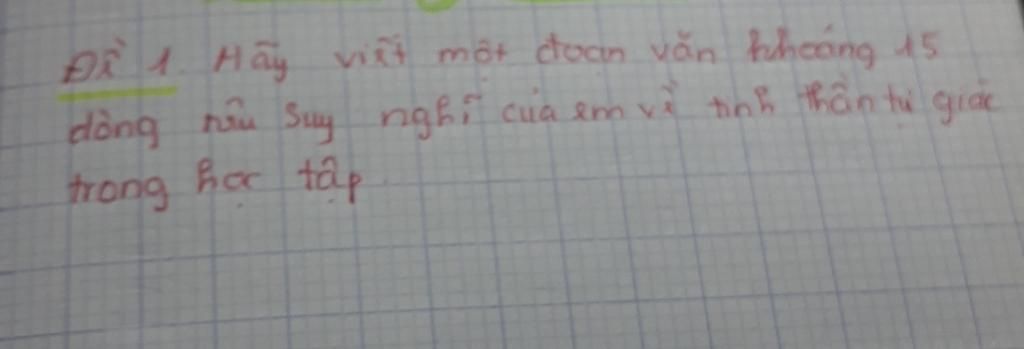 Đề 1. Hãy viết một đoạn văn khoảng 15
dòng nêu suy nghĩ của em về tinh thần tự giác
trong học tập